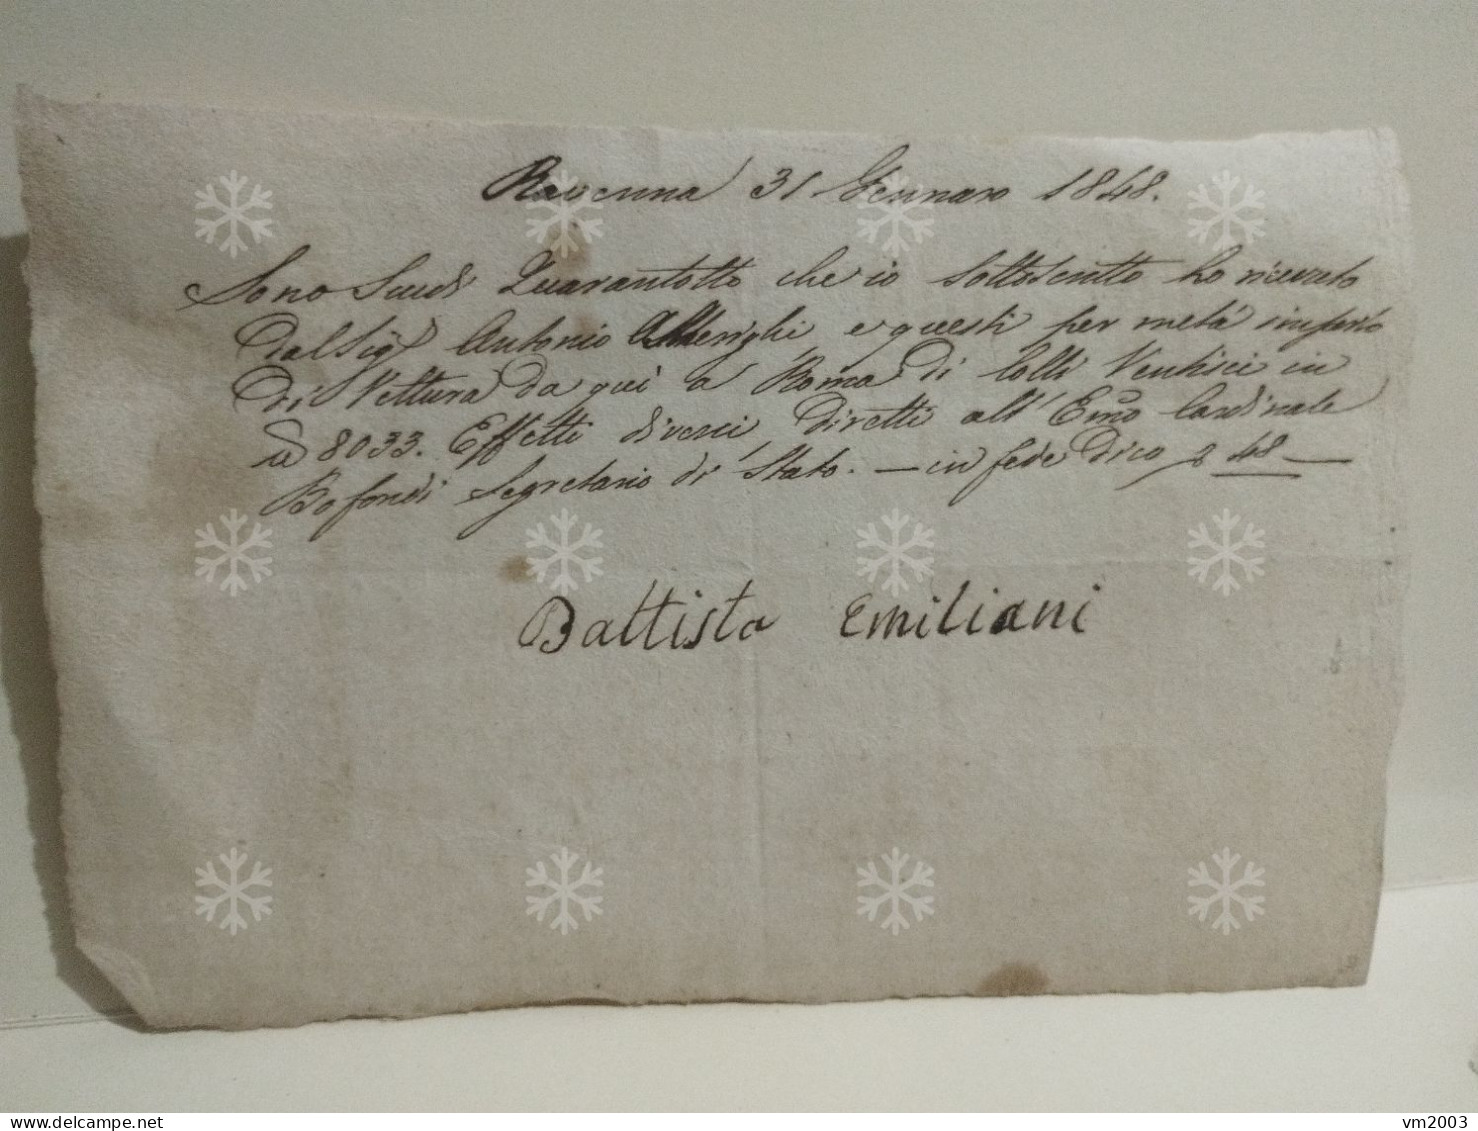 Ravenna 31 Gennaro 1848.
Sono Scudi Quarantotto che io sottoscritto ho ricevuto
dal Sig.r Antonio e questi per metà importo
di Vettura da qui a Roma di Colli Ventisei in
lb 8033. Effetti diversi diretti all' Emo Cardinale
Bofondi Segretario di Stato. — in fede dico 48 —
Battista Emiliani
vm2003